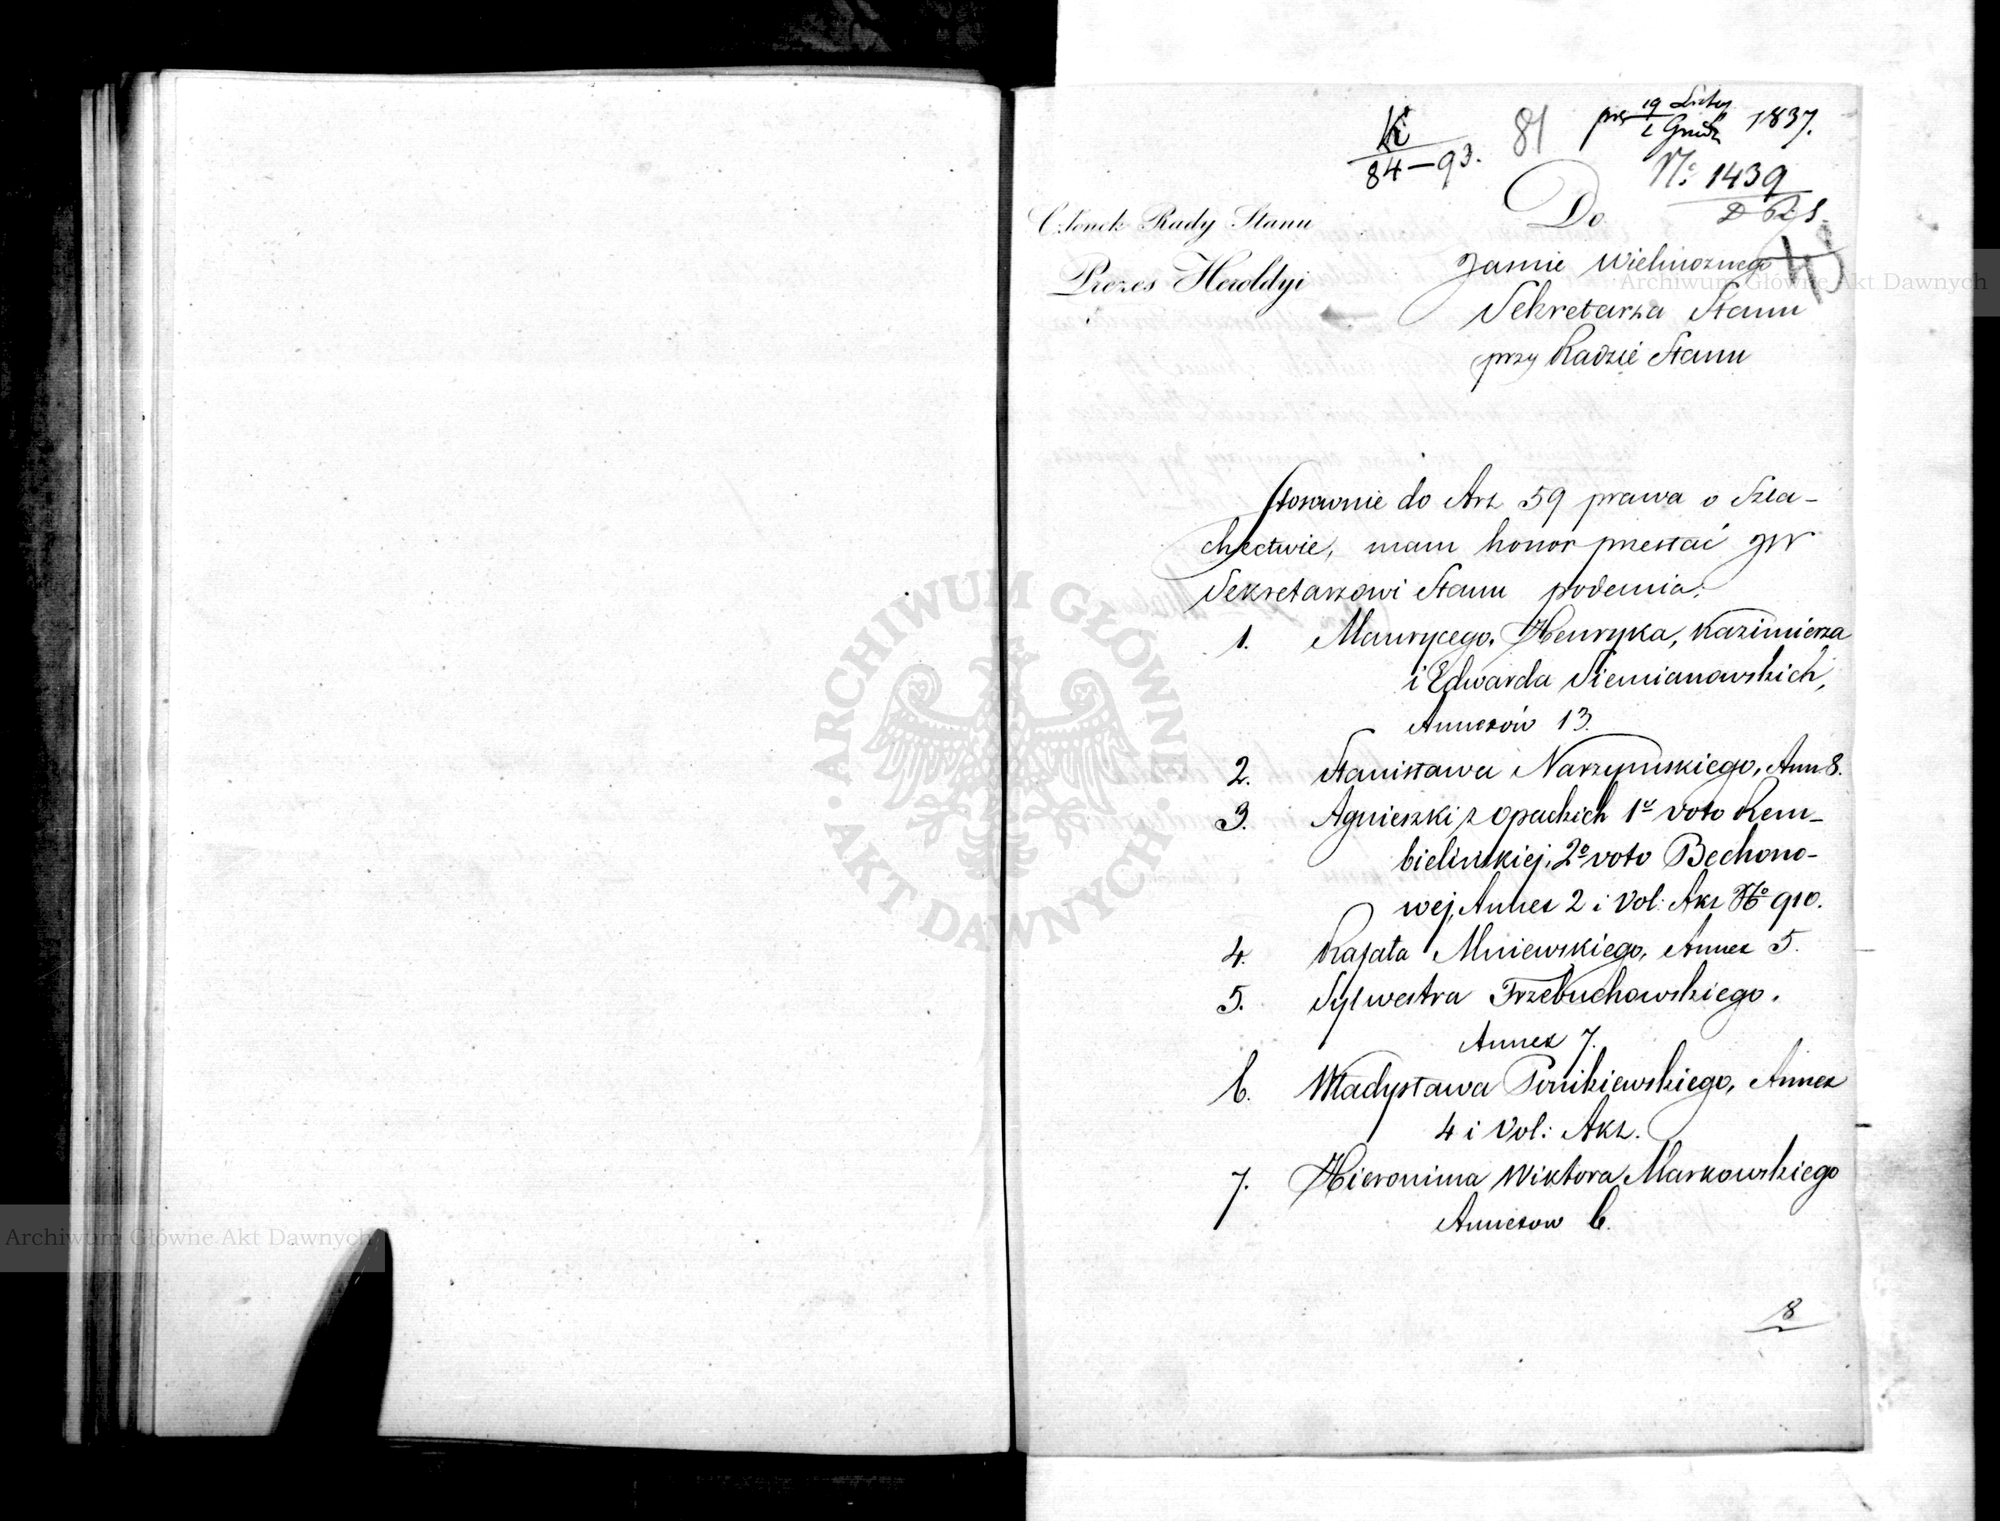 K
84—93.
81
prz 19 Listop 1837.
1 Grud
No: 1439
Członek Rady Stanu
Prezes Heroldyi
Do
Jaśnie Wielmożnego
Sekretarza Stanu
przy Radzie Stanu
Stosownie do Art 59 prawa o Szla-
chectwie, mam honor przesłać JW
Sekretarzowi Stanu podania:
1. Maurycego, Henryka, Kazimierza
i Edwarda Siemianowskich,
Annexów 13.
2. Stanisława Narzymskiego, Ann 8.
3. Agnieszki z Opackich 1o voto Rem-
bielińskiej, 2o voto Bechono-
wej, Annex 2 i Vol: Akt No 910.
4. Rafała Mniewskiego, Annex 5.
5. Sylwestra Trzebuchowskiego.
Annex 7.
6. Władysława Ponikiewskiego, Annex
4 i Vol: Akt.
7. Hieronima Wiktora Markowskiego
Annexow 6.
8
ARCHIWUM GŁÓWNE
AKT DAWNYCH
Archiwum Główne Akt Dawnych
Archiwum Główne Akt Dawnych